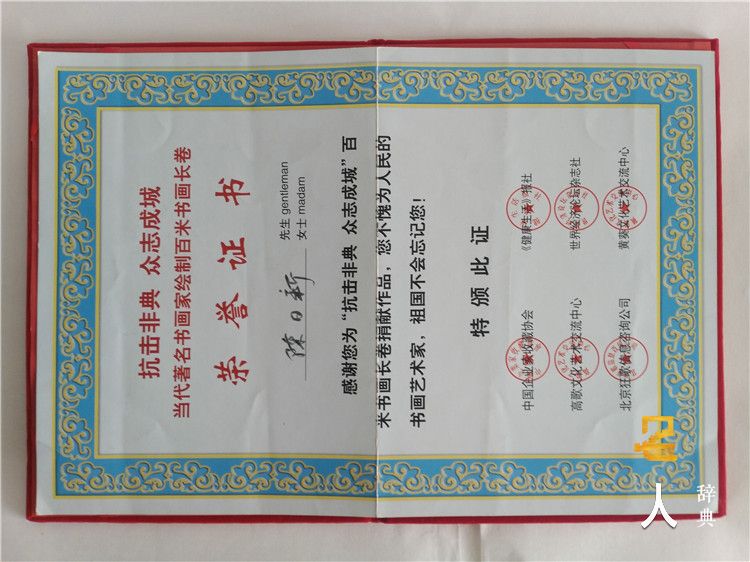 抗击非典 众志成城
当代著名书画家绘制百米书画长卷
荣誉证书
陈日新
先生 gentleman
女士 madam
感谢您为“抗击非典 众志成城”百
米书画长卷捐献作品，您不愧为人民的
书画艺术家，祖国不会忘记您！
特颁此证
中国企业家收藏协会
《健康生活》报社
高歌文化艺术交流中心
世界经济论坛杂志社
北京狂歌信息咨询公司
黄葵文化艺术交流中心
人
辞典